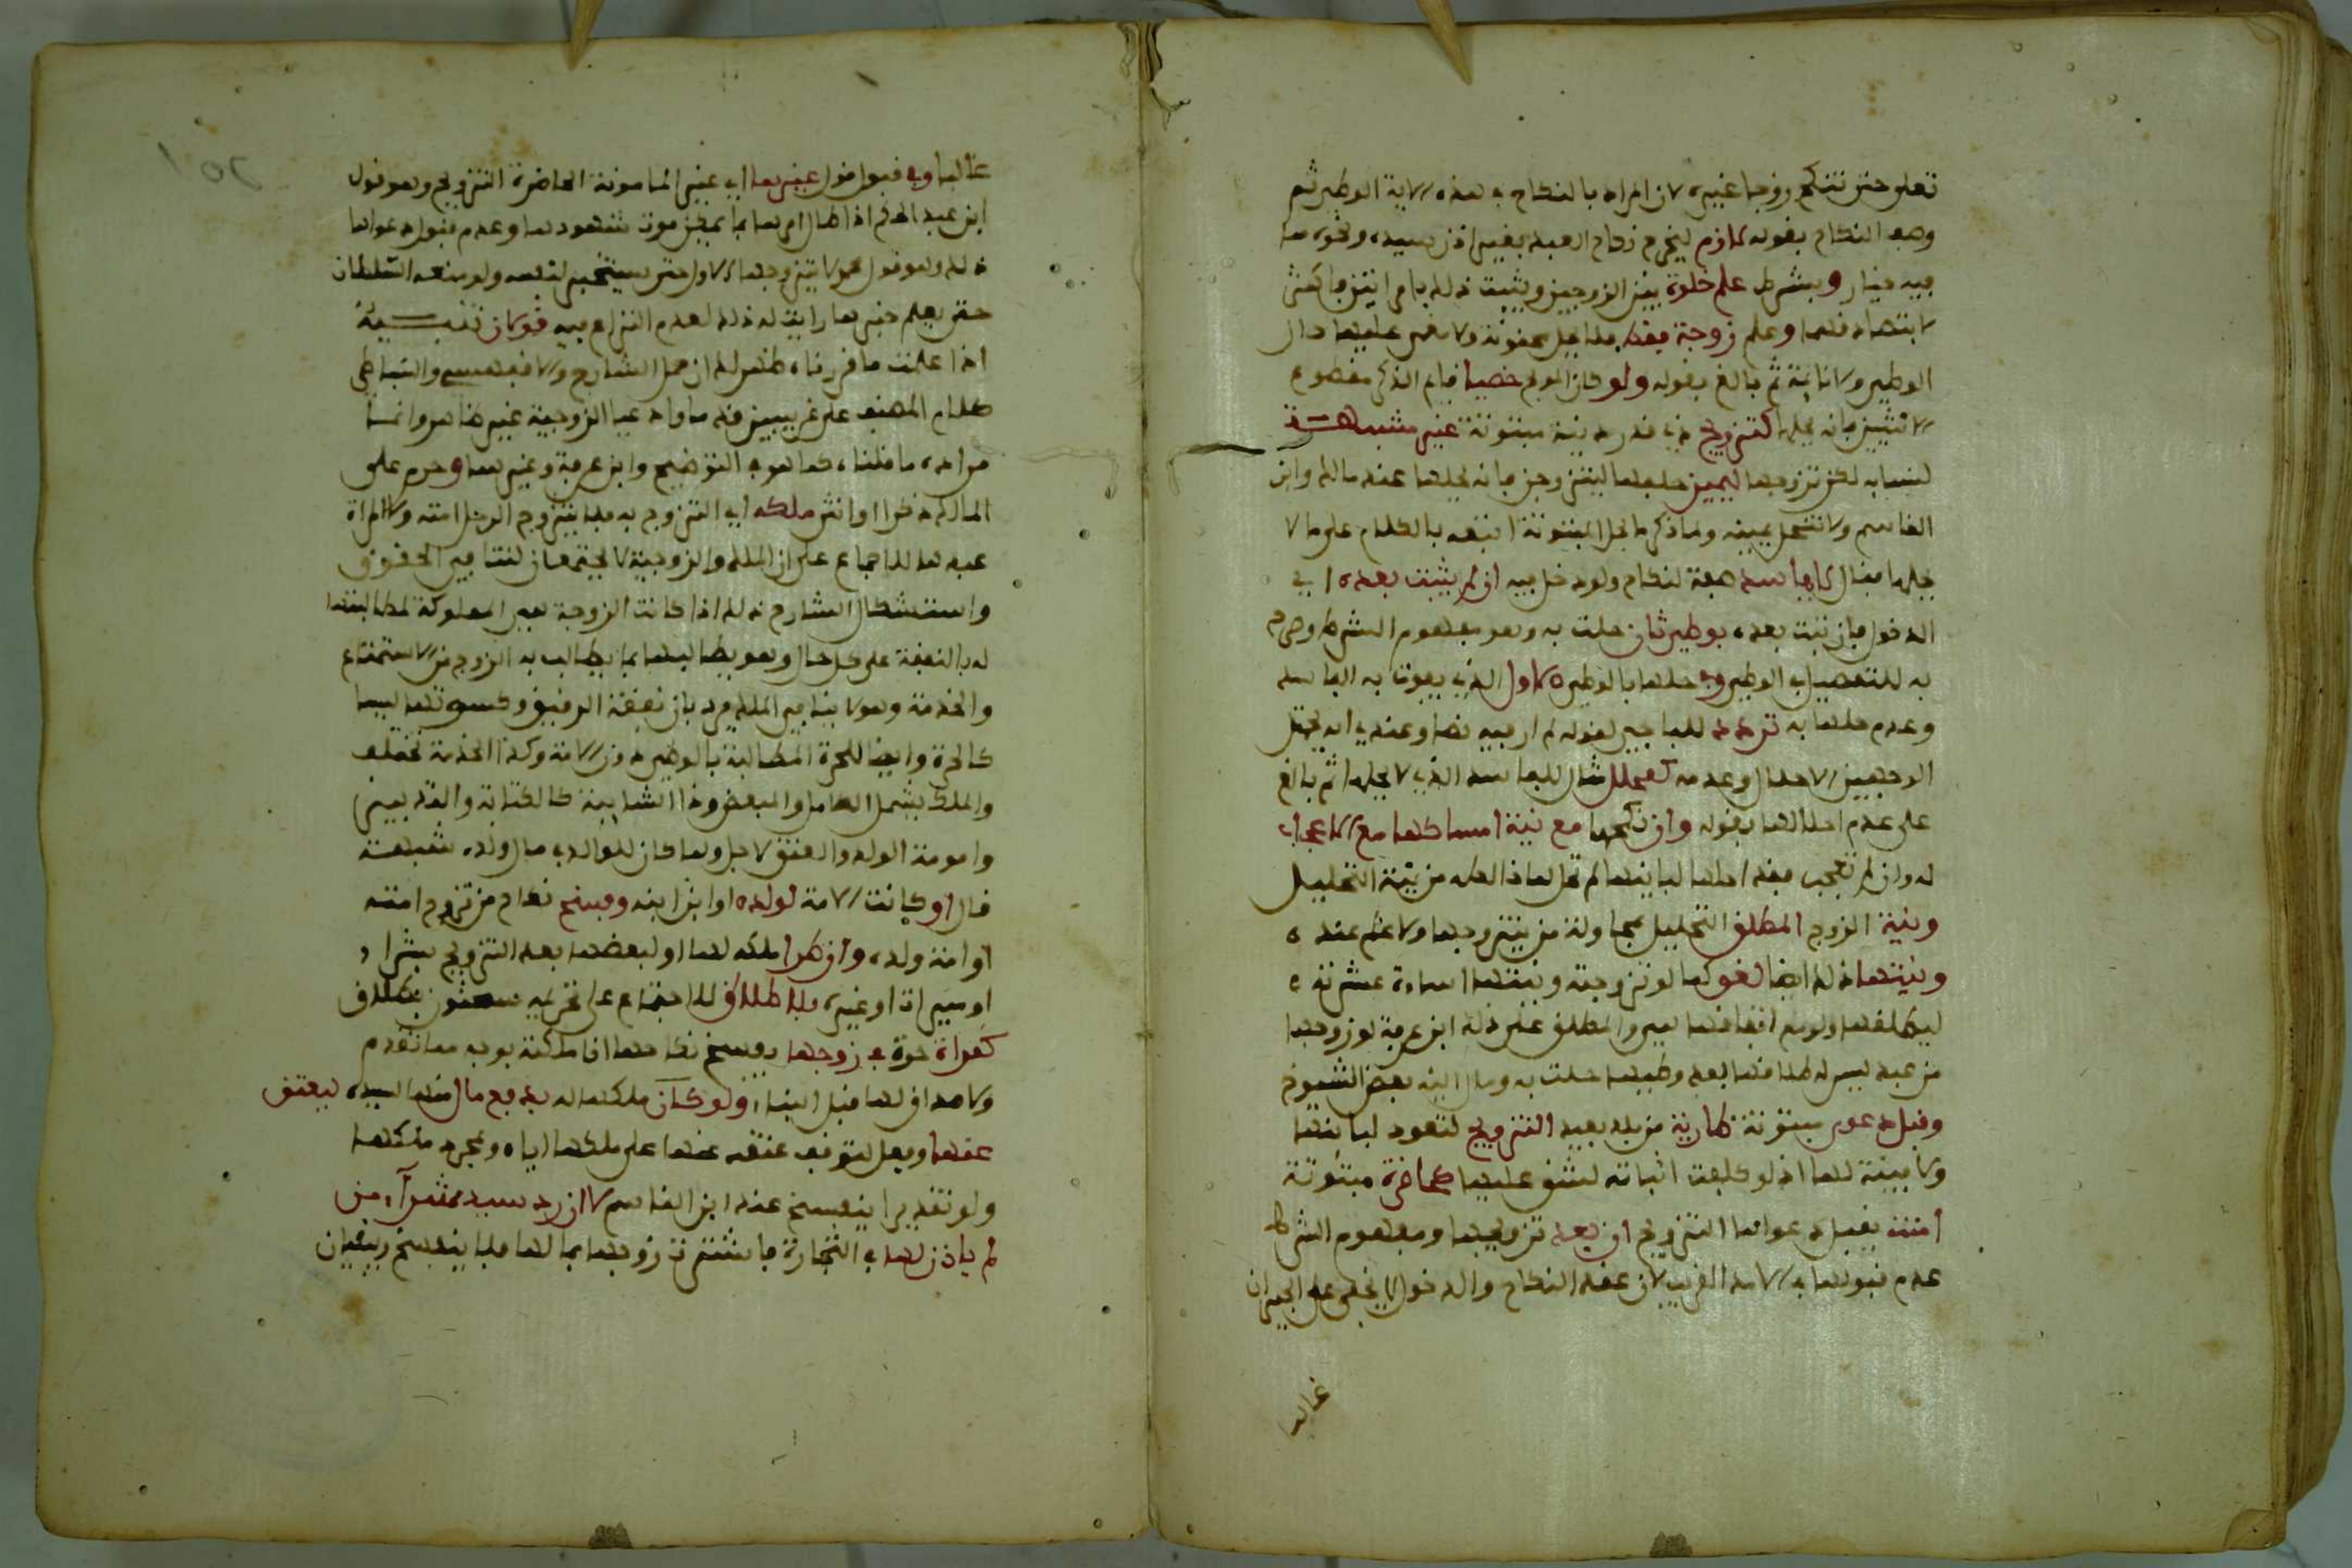 تعلى حتى تنكح زوجا غيره لان المراد بالنكاح في هذه الاية الوطئ ثم
وصف النكاح بقوله لازم ليخرج نكاح العبد بغير اذن سيده ونحوه مما
فيه خيار وبشرط علم خلوة بين الزوجين ويثبت ذلك بامراتين فاكثر
لا بتصادقهما وعلم زوجة فقط فلا تحل مجنونة ولا مغمى عليها حال
الوطئ ولا نائمة ثم بالغ بقوله ولو كان المولج خصيا قايم الذكر مقطوع
الانثيين فانه يحلها كتزويج ذي قدر دنية مبتوتة غير مشبهة
لنسايه لكن تزوجها ليمين حلفها ليتزوجن فانه يحلها عند مالك وابن
القاسم ولا تنحل يمينه ولما ذكر ما يحل المبتوتة اتبعه بالكلام على ما لا
يحلها فقال لا بفاسد صفة لنكاح ولو دخل فيه ان لم يثبت بعده اي
الدخول فان ثبت بعده بوطئ ثان حلت به وهو مفهوم الشرط وصرح
به للتفصيل في الوطئ وفي حلها بالوطئ الاول الذي يفوت به الفاسد
وعدم حلها به تردد للباجي لقوله لم ار فيه نصا وعندي انه يحتمل
الوجهين الاحلال وعدمه كمحلل مثال للفاسد الذي لا يحلها ثم بالغ
على عدم احلالها بقوله وان نكحها مع نية امساكها مع الاعجاب
له وان لم تعجبه فقد احلها لباتها لم تحل لما خالطه من نية التحليل
ونية الزوج المطلق التحليل بمحاولة من يتزوجها ولا علم عنده
ونيتها ذلك ايضا لغو كما لو تزوجته ونيتها اساءة عشرته
ليطلقها ولو مع اتفاقها هي والمطلق على ذلك ابن عرفة لو زوجها
من عبد ليسئله طلاقها بعد وطيها حلت به ومال اليه بعض الشيوخ
وقبل دعوى مبتوتة طارية من بلد بعيد التزويج لتعود لباتها
ولا بينة لها اذ لو كلفت اثباته لشق عليها كحاضرة مبتوتة
امنت يقبل دعواها التزويج ان بعد تزويجها ومفهوم الشرط
عدم قبولها في الامد القريب لان عقد النكاح والدخول لا يخفى على الجيران
غالبا
غالبا وفي قبول قول غيرها اي غير المامونة الحاضرة التزويج وهو قول
ابن عبد الحكم اذا طال امرها بما يمكن موت شهودها وعدم قبول دعواها
ذلك وهو قول محمد لا يتزوجها الاول حتى يستخبر لنفسه ولو منعه السلطان
حتى يعلم خبرها رايت له ذلك لعدم النزاع فيه قولان تنبيه
اذا علمت ما قررناه ظهر لك ان حمل الشارح والاقفهسي والبساطي
كلام المصنف على غريبين قدما وادعيا الزوجية غير ظاهر وانما
مراده ما قلناه كما هو في التوضيح وابن عرفة وغيرهما وحرم على
المالك ذكرا او انثى ملكه اي التزوج به فلا يتزوج الرجل امته ولا المراة
عبدها للاجماع على ان الملك والزوجية لا يجتمعان لتنافي الحقوق
واستشكال الشارح ذلك اذا كانت الزوجة هي المملوكة لمطالبتها
له بالنفقة على كل حال وهو يطالبها بما يطالب به الزوج من الاستمتاع
والخدمة وهو لا ينافي الملك مرد بان نفقة الرقيق وكسوتها ليسا
كالحرة وايضا للحرة المطالبة بالوطئ دون الامة وكذا الخدمة تختلف
والملك يشمل الكامل والمبعض وذا الشايبة كالكتابة والتدبير
وامومة الولد والعتق لاجل ولما كان للوالد في مال ولده شبهة
قال او كانت الامة لولده او ابن ابنه وفسخ نكاح من تزوج امته
او امة ولده وان طرا ملكه لها او لبعضها بعد التزويج بشراء
او ميراث او غيره بلا طلاق للاجتماع على تحريمه سحنون بطلاق
كمراة حرة في زوجها يفسخ نكاحها اذا ملكته بوجه مما تقدم
ولا صداق لها قبل البناء ولو كان ملكها له بدفع مال منها لسيده ليعتق
عنها وفعل لتوقف عتقه عنها على ملكها اياه وبمجرد ملكها
ولو تقديرا ينفسخ عند ابن القاسم لا ان رد سيد شراء من
لم ياذن لها في التجارة فاشترت زوجها بمالها فلا ينفسخ ويبقيان